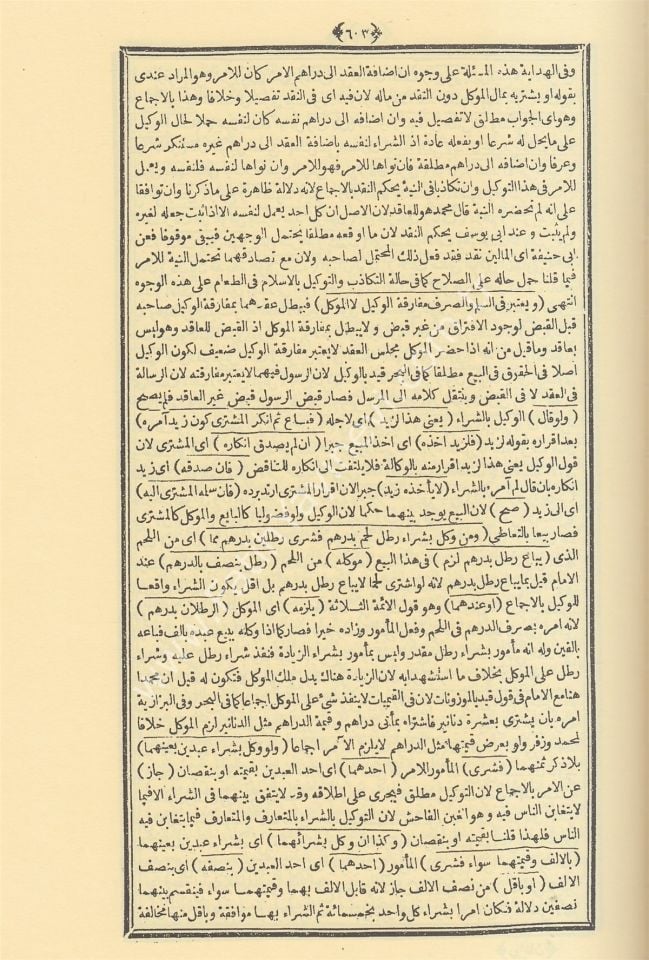 ﴿٦٠٣﴾
وفى الهداية هذه المسئلة على وجوه ان اضافة العقد الى دراهم الامر كان للامر وهو المراد عندى
بقوله او يشتريه بمال الموكل دون النقد من ماله لان فيه اى فى النقد تفصيلا وخلافا وهذا بالاجماع
وهو اى الجواب مطلق لا تفصيل فيه وان اضافه الى دراهم نفسه كان لنفسه حملا لحال الوكيل
على ما يحل له شرعا او يفعله عادة اذ الشراء لنفسه باضافة العقد الى دراهم غيره مستنكر شرعا
وعرفا وان اضافه الى دراهم مطلقة فان نواها للامر فهو للامر وان نواها لنفسه فلنفسه ويعمل
للامر فى هذا التوكيل وان تكاذبا فى النية يحكم النقد بالاجماع لانه دلالة ظاهرة على ما ذكرنا وان توافقا
على انه لم تحضره النية قال محمد هو للعاقد لان الاصل ان كل احد يعمل لنفسه الا اذا ثبت جعله لغيره
ولم يثبت وعند ابى يوسف يحكم النقد لان ما اوقعه مطلقا يحتمل الوجهين فيبقى موقوفا فعن
ابى حنيفة اى المالين نقد فقد فعل ذلك المحتمل لصاحبه ولان مع تصادقهما تحتمل النية للامر
فيما قلنا حمل حاله على الصلاح كما فى حالة التكاذب والتوكيل بالاسلام فى الطعام على هذه الوجوه
انتهى ( ويعتبر فى السلم والصرف مفارقة الوكيل لا الموكل ) فيبطل عقدهما بمفارقة الوكيل صاحبه
قبل القبض لوجود الافتراق من غير قبض ولا يبطل بمفارقة الموكل اذ القبض للعاقد وهو ليس
بعاقد وما قبل من انه اذا حضر الموكل مجلس العقد لا يعتبر مفارقة الوكيل ضعيف لكون الوكيل
اصلا فى الحقوق فى البيع مطلقا كما فى البحر قيد بالوكيل لان الرسول فيهما لا يعتبر مفارقته لان الرسالة
فى العقد لا فى القبض وينتقل كلامه الى المرسل فصار قبض الرسول قبض غير العاقد فلم يصح
( ولو قال ) الوكيل بالشراء ( بعنى هذا لزيد ) اى لاجله ( فباع ثم انكر المشترى كون زيد آمره )
بعد اقراره بقوله لزيد ( فلزيد اخذه ) اى اخذ المبيع جبرا ( ان لم يصدق انكاره ) اى المشترى لان
قول الوكيل بعنى هذا لزيد اقرار منه بالوكالة فلا يلتفت الى انكاره للتناقض ( فان صدقه ) اى زيد
انكاره بان قال لم آمره بالشراء ( لا يأخذه زيد ) جبرا لان اقرار المشترى ارتد برده ( فان سلمه المشترى اليه )
اى الى زيد ( صح ) لان البيع يوجد بينهما حكما لان الوكيل ولو فضوليا كالبايع والموكل كالمشترى
فصار بيعا بالتعاطى ( ومن وكل بشراء رطل لحم بدرهم فشرى رطلين بدرهم مما ) اى من اللحم
الذى ( يباع رطل بدرهم لزم ) فى هذا البيع ( موكله ) من اللحم ( رطل بنصف بالدرهم ) عند
الامام قيل بما يباع رطل بدرهم لانه لو اشترى لحما لا يباع رطل بدرهم بل اقل يكون الشراء واقعا
للوكيل بالاجماع ( او عندهما ) وهو قول الائمة الثلاثة ( يلزمه ) اى الموكل ( الرطلان بدرهم )
لانه امره بصرف الدرهم فى اللحم وفعل المأمور وزاده خيرا فصار كما اذا وكله ببيع عبده بالف فباعه
بالفين وله انه مأمور بشراء رطل مقدر وليس بمأمور بشراء الزيادة فنفذ شراء رطل عليه وشراء
رطل على الموكل بخلاف ما استشهدا به لان الزيادة هناك بدل ملك الموكل فتكون له قيل ان محمدا
هنا مع الامام فى قول قيد بالموزونات لان فى القيميات لا ينفذ شئ على الموكل اجماعا كما فى البحر وفى البزازية
امره بان يشترى بعشرة دنانير فاشتراه بمأتى دراهم وقيمة الدراهم مثل الدنانير لزم الموكل خلافا
لمحمد وزفر ولو بعرض قيمتها مثل الدراهم لا يلزم الآمر اجماعا ( ولو وكل بشراء عبدين بعينهما )
بلا ذكر ثمنهما ( فشرى ) المأمور للامر ( احدهما ) اى احد العبدين بقيمته او بنقصان ( جاز )
عن الامر بالاجماع لان التوكيل مطلق فيجرى على اطلاقه وقد لا يتفق بينهما فى الشراء الا فيما
لا يتغابن الناس فيه وهو الغبن الفاحش لان التوكيل بالشراء بالمتعارف والمتعارف فيما يتغابن فيه
الناس فلهذا قلنا بقيمته او بنقصان ( وكذا ان وكل بشرائهما ) اى بشراء عبدين بعينهما
( بالالف وقيمتهما سواء فشرى ) المأمور ( احدهما ) اى احد العبدين ( بنصفه ) اى بنصف
الالف ( او باقل ) من نصف الالف جاز لانه قابل الالف بهما وقيمتهما سواء فينقسم بينهما
نصفين دلالة فكان امرا بشراء كل واحد بخمسمائة ثم الشراء بها موافقة وباقل منها مخالفة